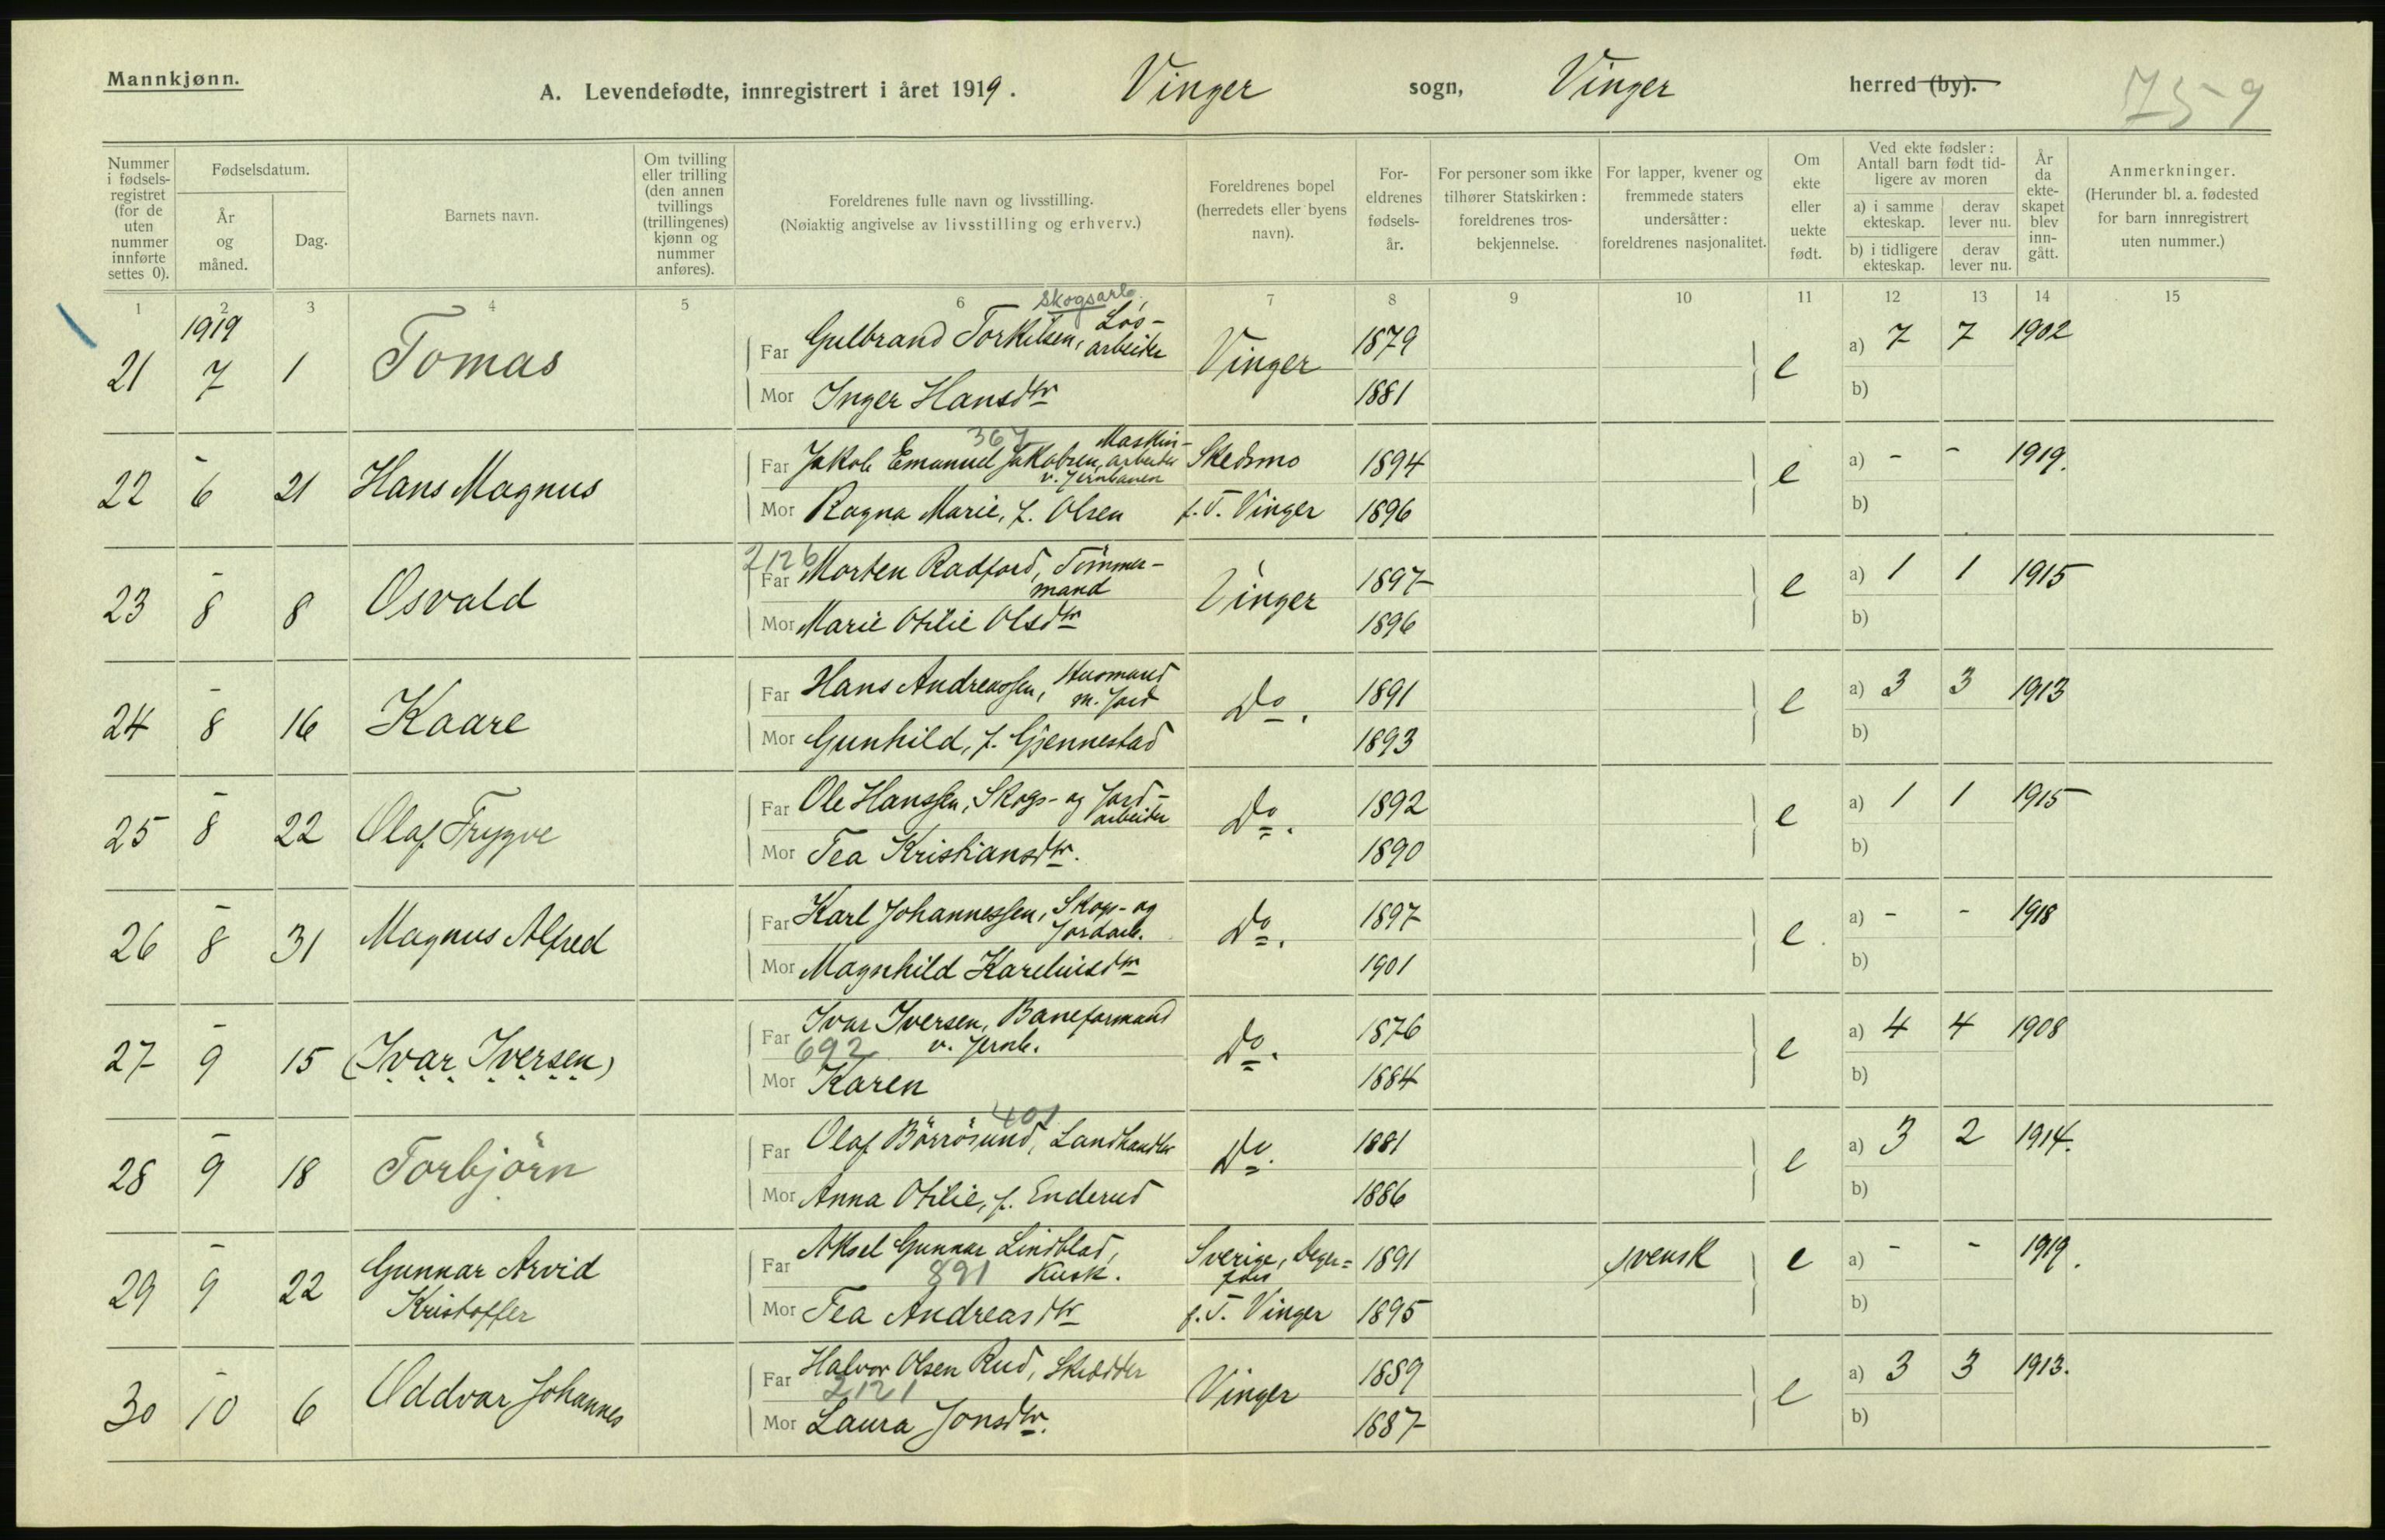 Mannkjønn.
A. Levendefødte, innregistrert i året 1919. Vinger sogn, Vinger herred (by). 75-9
Nummer i fødsels-registret (for de uten nummer innførte settes 0).
Fødselsdatum.
År og måned.
Dag.
Barnets navn.
Om tvilling eller trilling (den annen tvillings (trillingenes) kjønn og nummer anføres).
Foreldrenes fulle navn og livsstilling.
(Nøiaktig angivelse av livsstilling og erhverv.)
Foreldrenes bopel (herredets eller byens navn).
For-eldrenes fødsels-år.
For personer som ikke tilhører Statskirken: foreldrenes tros-bekjennelse.
For lapper, kvener og fremmede staters undersåtter: foreldrenes nasjonalitet.
Om ekte eller uekte født.
Ved ekte fødsler: Antall barn født tid-ligere av moren
a) i samme ekteskap. derav lever nu.
b) i tidligere ekteskap. derav lever nu.
År da ekte-skapet blev inn-gått.
Anmerkninger.
(Herunder bl. a. fødested for barn innregistrert uten nummer.)
1 2 3 4 5 6 7 8 9 10 11 12 13 14 15
1919
skogsarb.
21 7 1 Tomas Far Gulbrand Torkilsen, Løs-arbeider Vinger 1879 e a) 7 7 1902
Mor Inger Hansdtr 1881 b)
367
22 - 6 21 Hans Magnus Far Jakob Emanuel Jakobsen, Maskin-arbeider v. Jernbanen Skedsmo 1894 e a) - - 1919.
Mor Ragna Marie, f. Olsen f.T. Vinger 1896 b)
2126
23 - 8 8 Osvald Far Morten Radford, Tømmer-mand Vinger 1897 e a) 1 1 1915
Mor Marie Otilie Olsdtr 1896 b)
24 - 8 16 Kaare Far Hans Andreassen, Husmand m. Jord Do. 1891 e a) 3 3 1913
Mor Gunhild, f. Gjennestad 1893 b)
25 - 8 22 Olaf Trygve Far Ole Hanssen, Skogs- og Jord-arbeider Do. 1892 e a) 1 1 1915
Mor Tea Kristiansdtr. 1890 b)
26 - 8 31 Magnus Alfred Far Karl Johannessen, Skogs- og Jordarb. Do. 1897 e. a) - - 1918
Mor Magnhild Kareliusdtr 1901 b)
27 - 9 15 (Ivar Iversen) Far Ivar Iversen, Baneformand v. Jernb. Do. 1876 e a) 4 4 1908
692
Mor Karen 1884 b)
401
28 - 9 18 Torbjörn Far Olaf Börrösund, Landhandler Do. 1881 e a) 3 2 1914.
Mor Anna Otilie, f. Enderud 1886 b)
29 - 9 22 Gunnar Arvid Kristoffer Far Aksel Gunnar Lindblad, Kusk. Sverige, 1891 svensk e a) - - 1919.
891
Mor Tea Andreasdtr f.T. Vinger 1895 b)
30 - 10 6 Oddvar Johannes Far Halvor Olsen Rud, Skrædder Vinger 1889 e a) 3 3 1913.
2121
Mor Laura Jonsdtr. 1887 b)